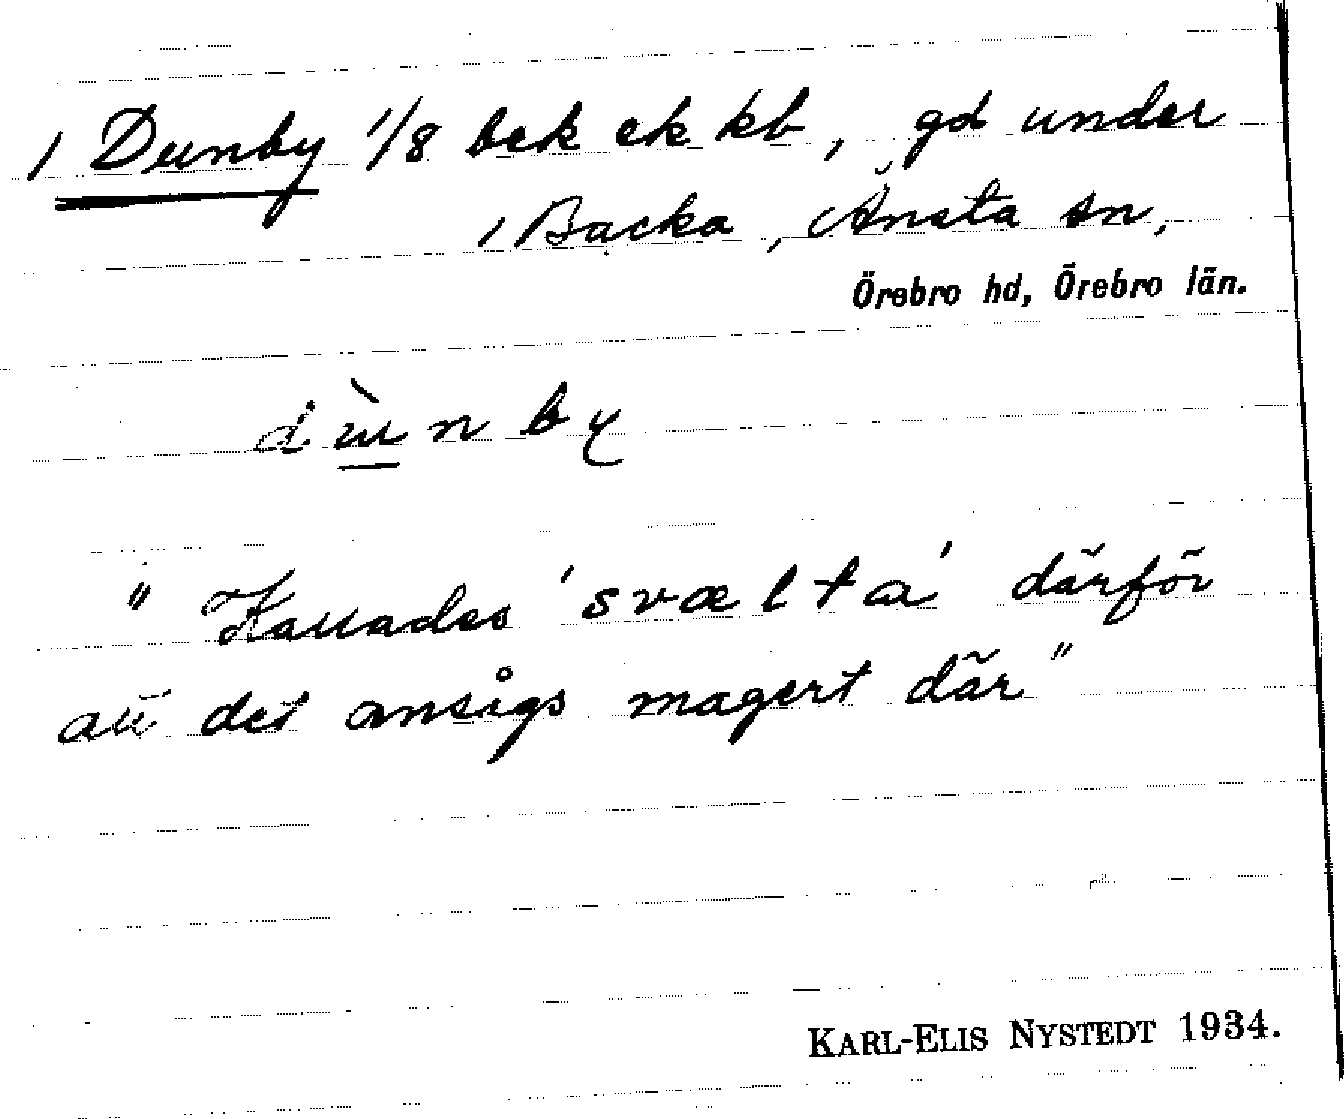 / Dunby 1/8 bek ek kb, gd under
/ Backa, Ånsta sn,
Örebro hd, Örebro län.
dùnby
" Kallades 'svælta' därför
att det ansågs magert där"
KARL-ELIS NYSTEDT 1934.